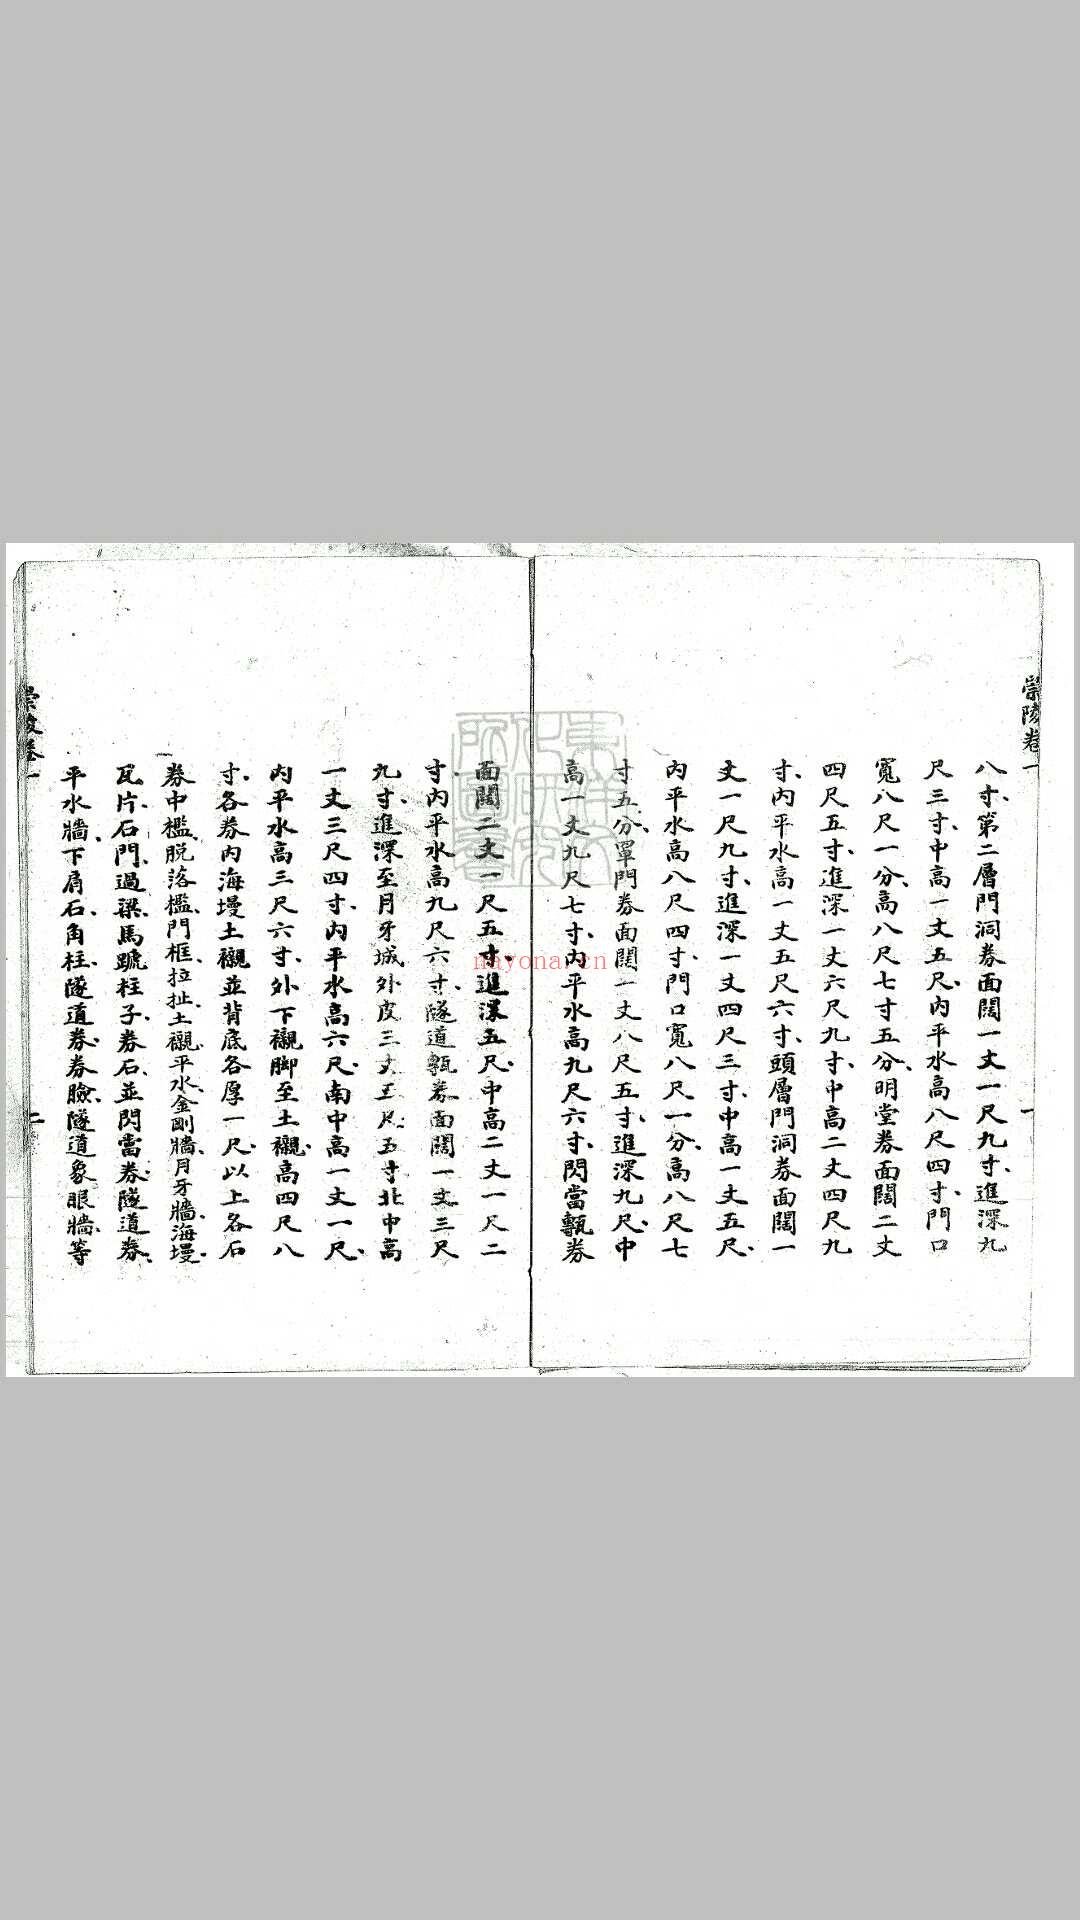 崇陵卷一
八寸、第二層門洞券面闊一丈一尺九寸、進深九
尺三寸、中高一丈五尺、內平水高八尺四寸、門口
寬八尺一分、高八尺七寸五分、明堂券面闊二丈
四尺五寸、進深一丈六尺九寸、中高二丈四尺九
寸、內平水高一丈五尺六寸、頭層門洞券面闊一
丈一尺九寸、進深一丈四尺三寸、中高一丈五尺、
內平水高八尺四寸、門口寬八尺一分、高八尺七
寸五分、罩門券面闊一丈八尺五寸、進深九尺、中
高一丈九尺七寸、內平水高九尺六寸、閃當甎券
一
面闊二丈一尺五寸、進深五尺、中高二丈一尺二
寸、內平水高九尺六寸、隧道甎券面闊一丈三尺
九寸、進深至月牙城外皮三丈五尺五寸北中高
一丈三尺四寸、內平水高六尺、南中高一丈一尺、
內平水高三尺六寸、外下襯脚至土襯高四尺八
寸、各券內海墁土襯並背底各厚一尺、以上各石
券中檻、脫落檻、門框、拉扯、土襯、平水、金剛牆、月牙牆、海墁、
瓦片、石門、過梁、馬蹏柱子、券石、並閃當券、隧道券、
平水牆、下肩石、角柱、隧道券、券臉、隧道象眼牆、等
崇陵卷一
二
nayona.cn